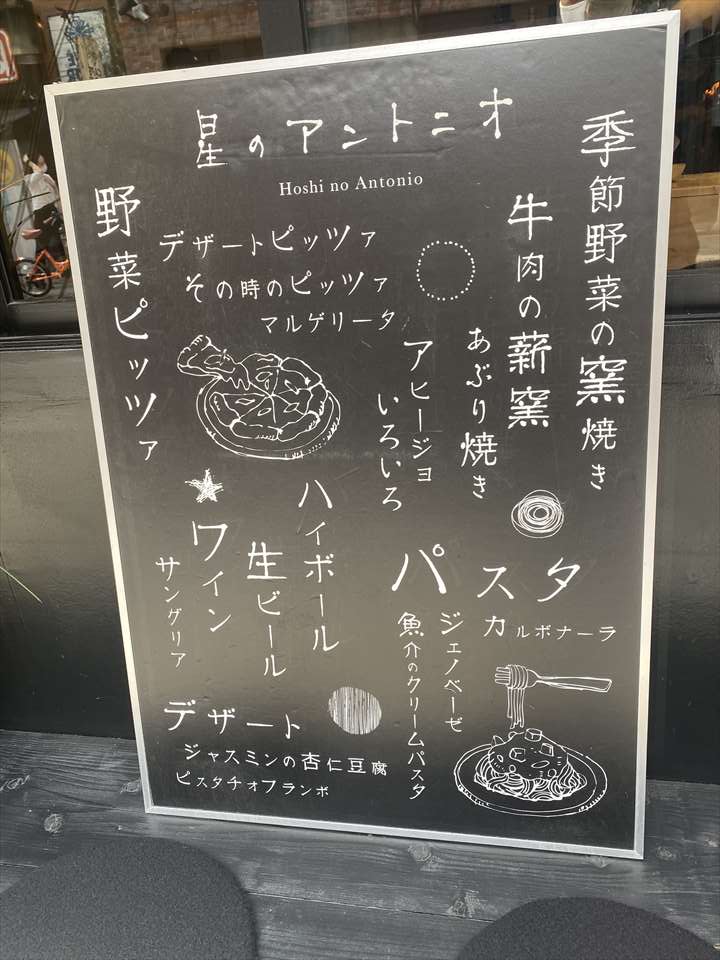 星のアントニオ
Hoshi no Antonio
季節野菜の窯焼き
牛肉の薪窯
あぶり焼き
アヒージョ
いろいろ
デザートピッツァ
その時のピッツァ
マルゲリータ
野菜ピッツァ
ハイボール
生ビール
ワイン
サングリア
パスタ
カルボナーラ
ジェノベーゼ
魚介のクリームパスタ
デザート
ジャスミンの杏仁豆腐
ピスタチオフランボ